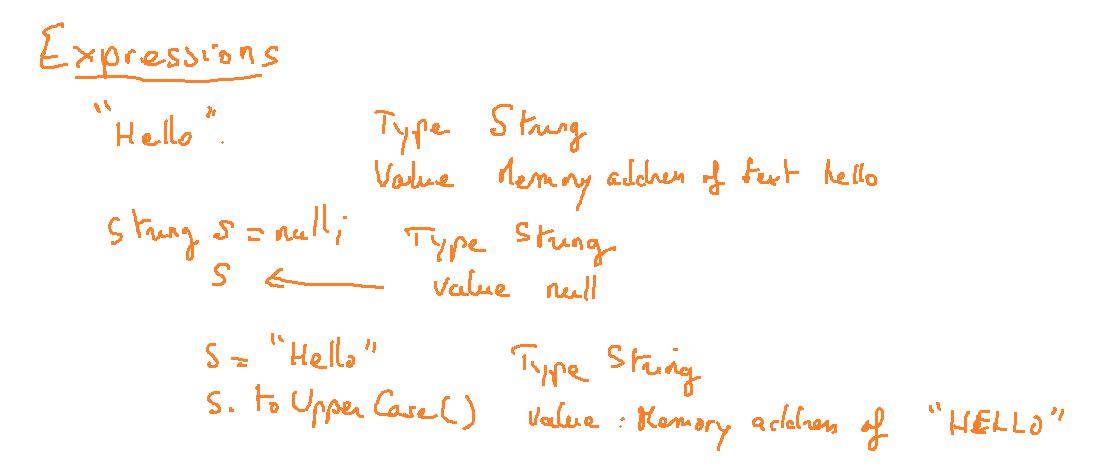 Expressions
"Hello". Type String
Value Memory address of text hello
String s = null; Type String
s ← value null
s = "Hello" Type String
s.toUpperCase() value : Memory address of "HELLO"